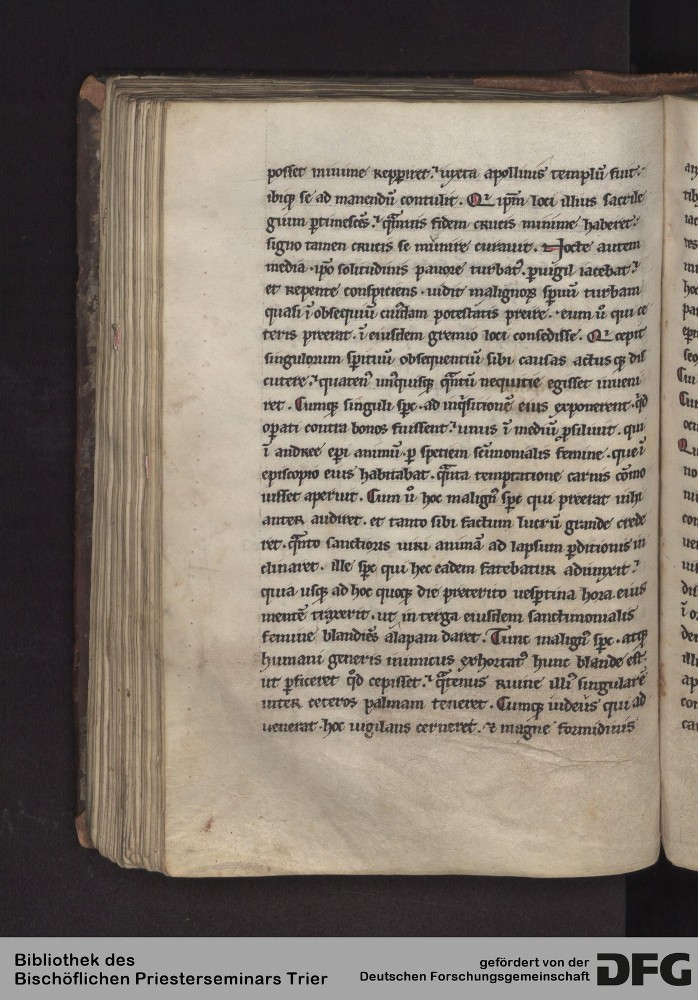 posset minime repperiret. iuxta apollinis templū fuit.
ibiq; se ad manendū contulit. Qi ipm̄ loci illius sacrile
gium ꝑtimescēs. qͣmuis fidem crucis minime haberet.
signo tamen crucis se munire curauit. Nocte autem
media. ipo solitudinis pauore turbatꝰ. ꝑuigil iacebat.
et repente conspiciens. uidit malignoꝝ spūū turbam
quasi ī obsequiū cuiꝰdam potestatis preire. eum ū qui ce
teris preerat. ī eiusdem gremio loci consedisse. Qi cepit
singulorum spirituū obsequentiū sibi causas actusq; dis
cutere. quatenꝰ unꝰquisq; qͣntū nequitie egisset inueni
ret. Cumq; singuli spc. ad inqͥsitionē eius exponerent. qͥd
oꝑati contra bonos fuissent. unus ī mediū ꝓsiluit. qui
ī andree epi animū. ꝑ speciem sc̄imonialis femine. que ī
episcopio eius habitabat. qͣnta temptatione carnis cōmo
uisset aperuit. Cum ū hoc malignꝰ spc qui preerat inhi
anter audiret. et tanto sibi factum lucrū grande crede
ret. qͣnto sanctioris uiri animā ad lapsum ꝑditionis in
clinaret. ille spc qui hec eadem fatebatur adiunxit.
quia usq; ad hoc quoq; die preterito uespertina hora eius
mentē traxerit. ut in terga eiusdem sanctimonialis
femine blandiēs alapam daret. Tunc malignꝰ spc. atq;
humani generis inimicus exhortatꝰ hunc blande est.
ut ꝑficeret qd̓ cepisset. qͣtenus ruine illiꝰ singularē
inter ceteros palmam teneret. Cumq; iudeus qui ad
uenerat. hoc uigilans cerneret. & magne formidinis
Bibliothek des
Bischöflichen Priesterseminars Trier
gefördert von der
Deutschen Forschungsgemeinschaft
DFG